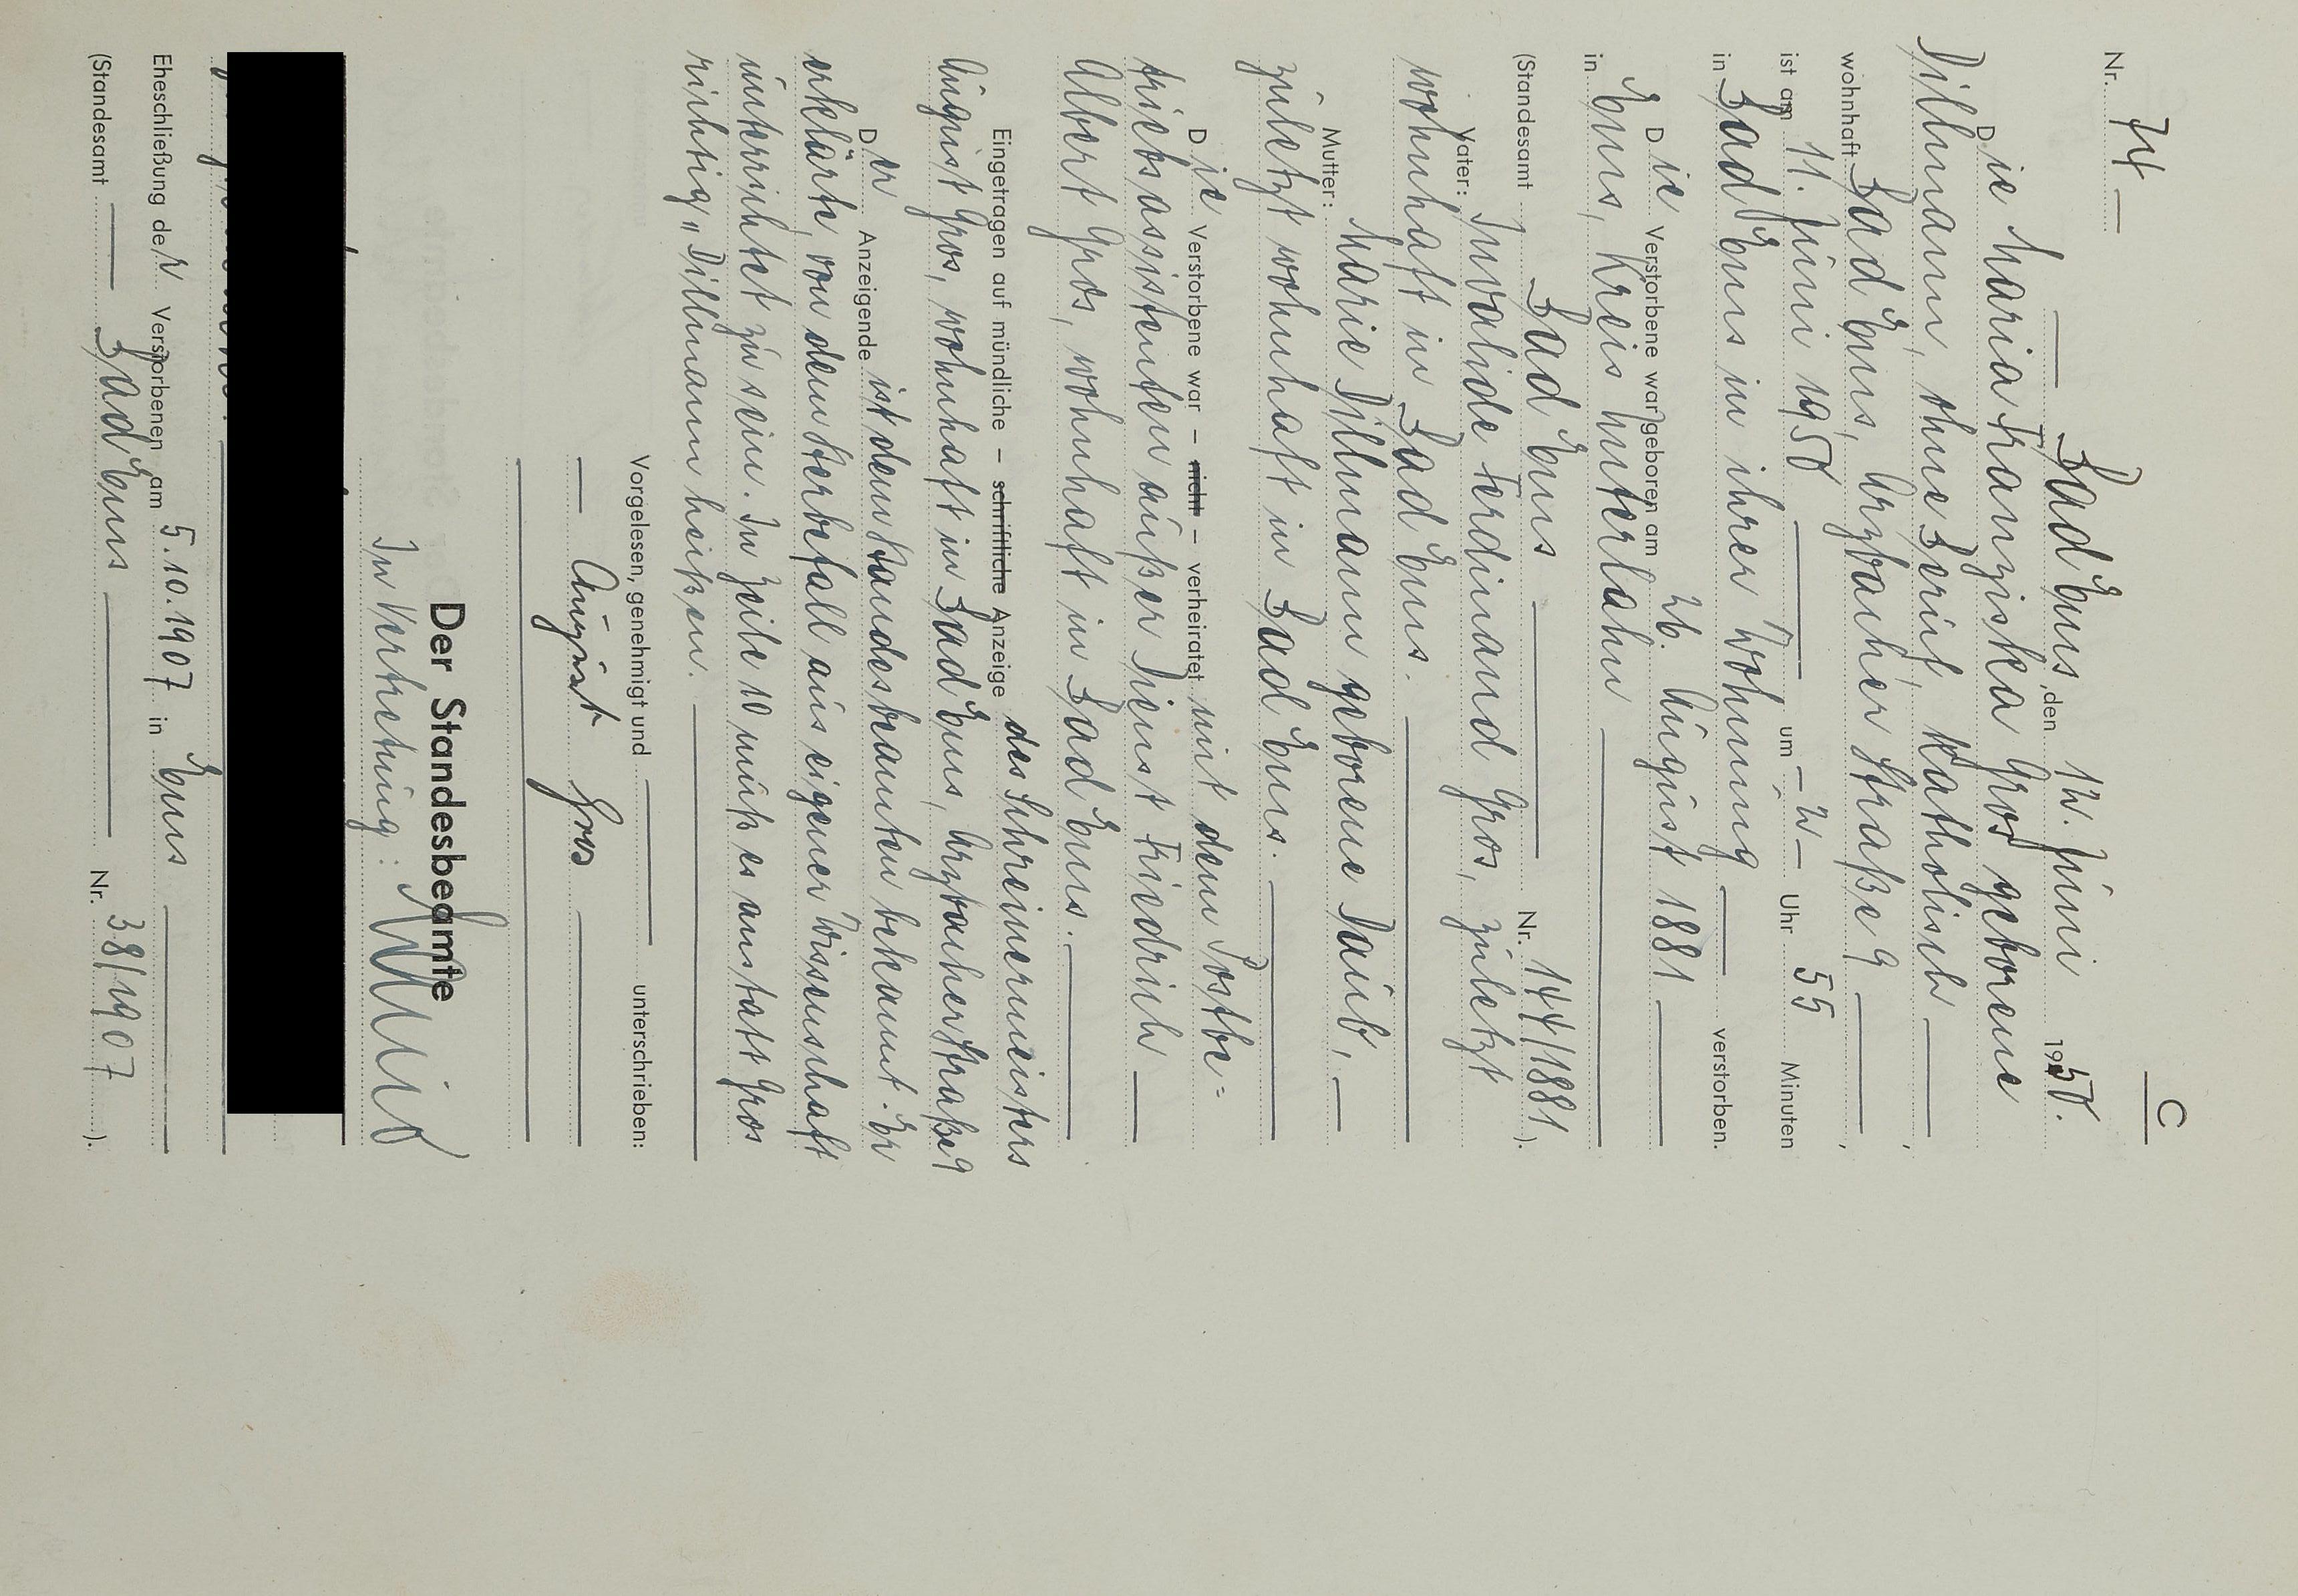 C
Nr. 74
Bad Ems, den 12. Juni 1950.
Die Maria Franziska Gros geborene
Dillmann, ohne Beruf, katholisch,
wohnhaft Bad Ems, Arzbacher Straße 9,
ist am 11. Juni 1950 um - 2 - Uhr 55 Minuten
in Bad Ems in ihrer Wohnung verstorben.
Die Verstorbene war geboren am 26. August 1881
in Ems, Kreis Unterlahn
(Standesamt Bad Ems Nr. 144/1881).
Vater: Invalide Ferdinand Gros, zuletzt
wohnhaft in Bad Ems.
Mutter: Marie Dillmann geborene Daub,
zuletzt wohnhaft in Bad Ems.
Die Verstorbene war - nicht - verheiratet mit dem Postbe=
triebsassistenten außer Dienst Friedrich
Albert Gros, wohnhaft in Bad Ems.
Eingetragen auf mündliche - schriftliche Anzeige des Schreinermeisters
August Gros, wohnhaft in Bad Ems, Arzbacher Straße 9
Der Anzeigende ist dem Standesbeamten bekannt. Er
erklärte, von dem Sterbefall aus eigener Wissenschaft
unterrichtet zu sein. In Zeile 10 muß es anstatt Gros
richtig „Dillmann heißen.
Vorgelesen, genehmigt und unterschrieben:
August Gros
Der Standesbeamte
In Vertretung:
Eheschließung der Verstorbenen am 5.10.1907 in Ems
(Standesamt Bad Ems Nr. 38/1907).